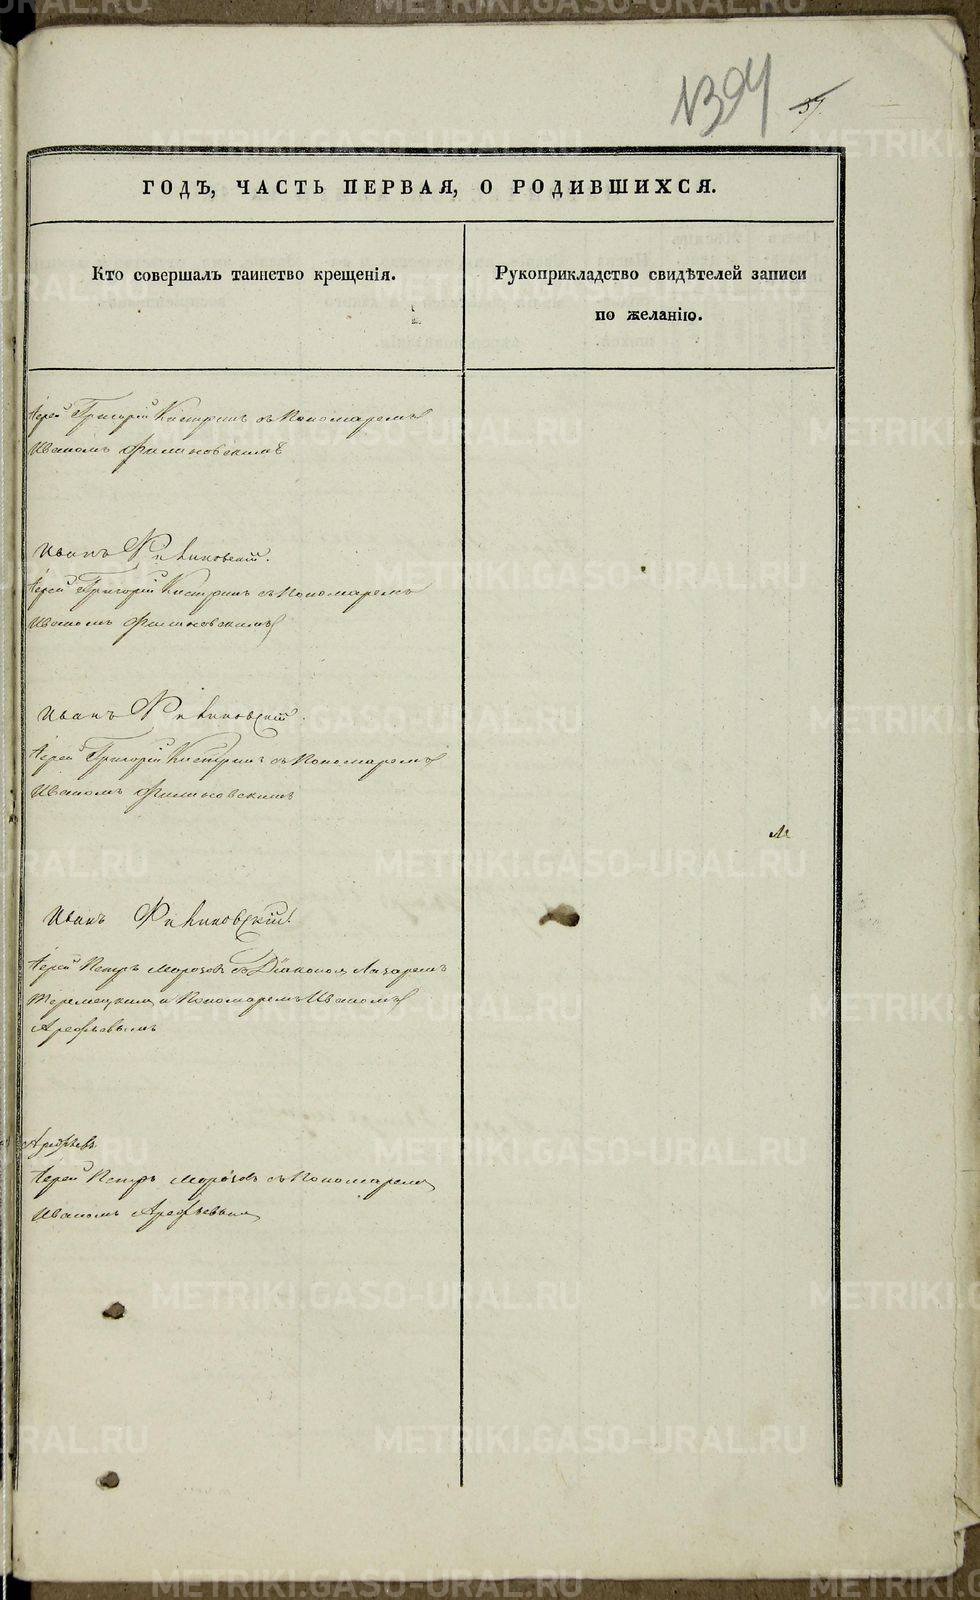 №394 37.
ГОДЪ, ЧАСТЬ ПЕРВАЯ, О РОДИВШИХСЯ.
Кто совершалъ таинство крещенія.
Рукоприкладство свидѣтелей записи
по желанію.
Іерей Григорій Кистринъ съ Пономаремъ
Иваномъ Филиновскимъ
Иванъ Филиновскій.
Іерей Григорій Кистринъ съ Пономаремъ
Иваномъ Филиновскимъ
Иванъ Филиновскій.
Іерей Григорій Кистринъ съ Пономаремъ
Иваномъ Филиновскимъ
Иванъ Филиновскій.
Іерей Петръ Морозовъ съ Діакономъ Лазаремъ
и Пономаремъ Иваномъ
Арефьевымъ
Арефьевъ
Іерей Петръ Морозовъ съ Пономаремъ
Иваномъ Арефьевымъ
METRIKI.GASO-URAL.RU